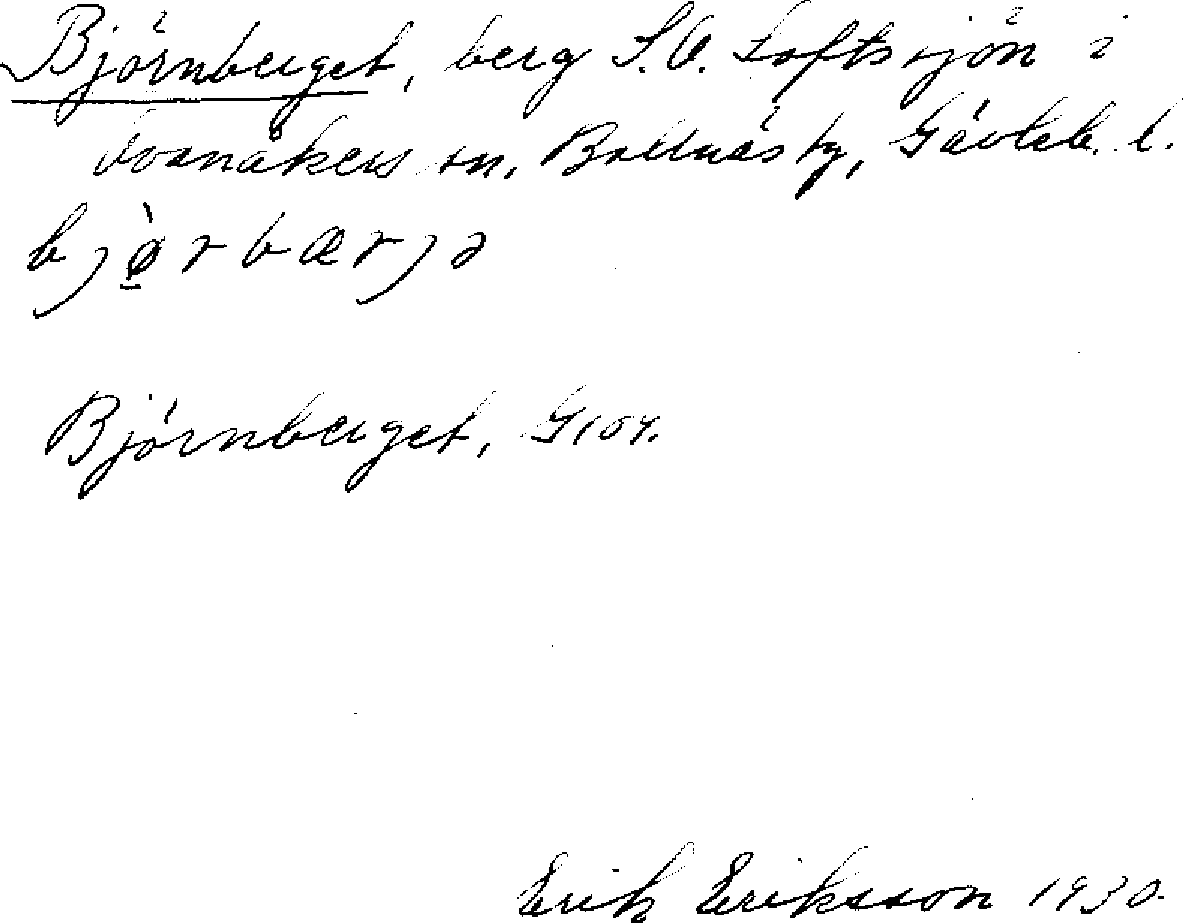 Björnberget, berg S.V. Loftssjön i
Voxnåkers sn. Bollnäs tg, Gävleb. l.
bjø̀rbærjə
Björnberget, G104.
Erik Eriksson 1930.